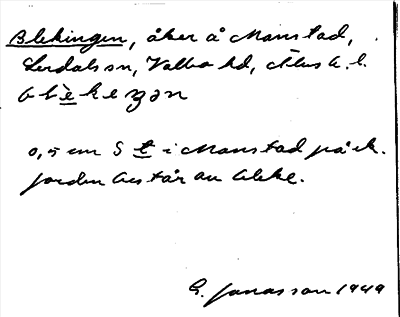 Blekingen, åker å Manstad,
Lerdals sn, Valbo hd, Älvsb. l.
blèkeŋən
0,5 cm S t i Manstad på ek.
Jorden består av bleke.
G. Jonasson 1949